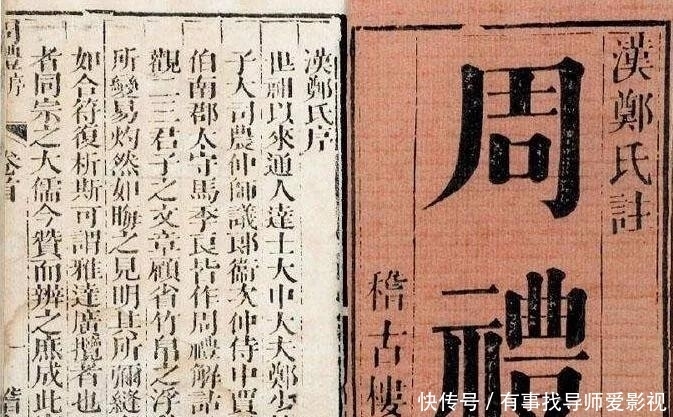 漢鄭氏註
周禮
稽古樓
漢鄭氏序
世祖以來通人達士大中大夫鄭少
子大司農仲師議郎衛次仲侍中賈
伯南郡太守馬季長皆作周禮解詁
觀二三君子之文章顧省竹帛之浮
所變易灼然如晦之見明其所彌縫
如合符復析斯可謂雅達廣攬者也
者同宗之大儒今贊而辨之庶成此
周禮序 卷首 一
快传号 / 有事找导师爱影视